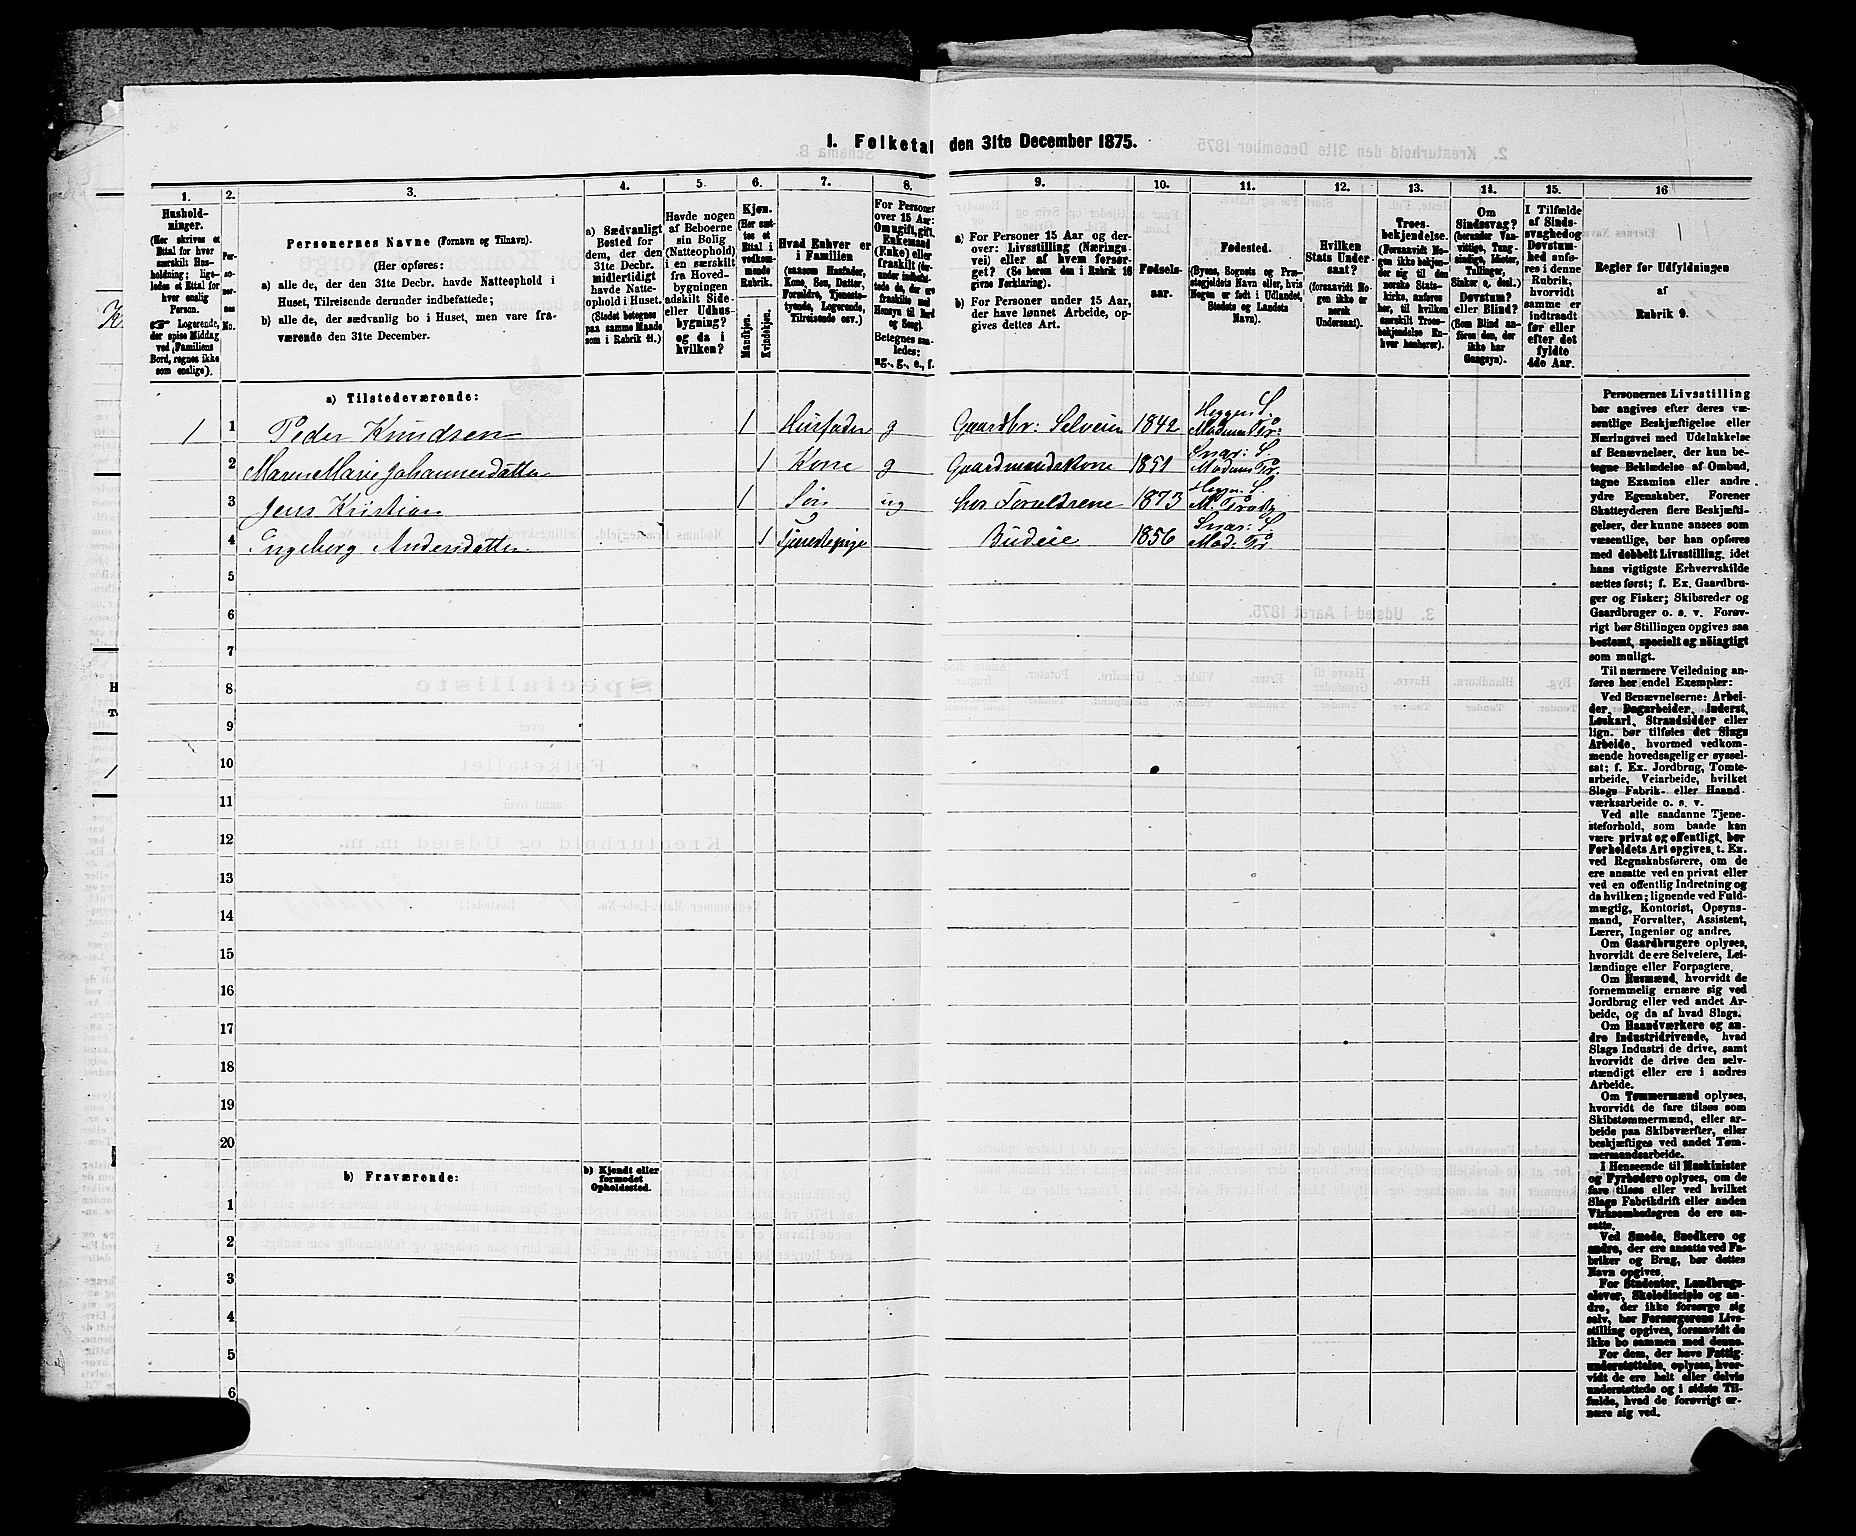 1. Folketal den 31te December 1875.
1.
2.
3.
4.
5.
6.
7.
8.
9.
10.
11.
12.
13.
14.
15.
16
Hushold-
ninger.
(Her skrives et
Ettal for hver
særskilt Hus-
holdning; lige-
ledes et Ettal for
hver enslig
Person.
☞ Logerende,
der spise Middag
ved Familiens
Bord, regnes ikke
som enslige).
Per-
so-
ner-
nes
No.
Personernes Navne (Fornavn og Tilnavn).
(Her opføres:
a) alle de, der den 31te Decbr. havde Natteophold i
Huset, Tilreisende derunder indbefattede;
b) alle de, der sædvanlig bo i Huset, men vare fra-
værende den 31te December.
a) Sædvanligt
Bosted for
dem, der den
31te Decbr.
midlertidigt
havde Natte-
ophold i Huset.
(Stedet betegnes
paa samme Maade
som i Rubrik 11.)
Havde nogen
af Beboerne
sin Bolig
(Natteophold)
i en særskilt
fra Hoved-
bygningen
adskilt Side-
eller Udhus-
bygning?
og da i
hvilken?
Kjøn.
(Her sæt-
tes et
Ettal i
vedkom-
mende
Rubrik.)
Mandkjøn.
Kvindekjøn.
Hvad Enhver er
i Familien
(saasom Husfader,
Kone, Søn, Datter,
Forældre, Tjeneste-
tyende, Logerende,
Tilreisende osv.)
For Personer
over 15 Aar:
Om ugift, gift,
Enkemand
(Enke) eller
fraskilt
Betegnes saa-
ledes:
ug., g., e., f.
a) For Personer 15 Aar og der-
over: Livsstilling (Nærings-
vei) eller af hvem forsør-
get? (Se herom den i Rubrik 16
givne Forklaring).
b) For Personer under 15 Aar,
der have lønnet Arbeide, op-
gives dettes Art.
Fødsels-
aar.
Fødested.
(Byens, Sognets og Præ-
stegjeldets Navn eller, hvis
Nogen er født i Udlandet,
Stedets og Landets
Navn).
Hvilken
Stats Under
saat?
(forsaavidt No-
gen ikke er
norsk
Undersaat).
Troes-
bekjendelse.
(Forsaavidt No-
gen ikke bekjen-
der sig til den
norske Stats-
kirke, anføres
her, til hvilken
særskilt Troes-
bekjendelse En-
hver henhører).
Om
Sindssvag?
(herunder Van-
vittige, Tung-
sindige, Idioter,
Tullinger,
Sinker o. desl.)
Døvstum?
eller Blind?
(Som Blind an-
føres den, der
ikke har
Gangsyn).
I Tilfælde
af Sinds
svaghed og
Døvstum-
hed anfø-
res i denne
Rubrik,
hvorvidt
samme er
indtraadt
før eller
efter det
fyldte
4de Aar.
Regler for Udfyldningen
af
Rubrik 9.
a) Tilstedeværende:
1 1 Peder Knudsen 1 Husfader g Gaardbr: Selveier 1842 Heggen S. Modum Pr:
2 Maren Marie Johannesdatter 1 Kone g Gaardmandskone 1851 Snar: S. Modum Pr.
3 Jens Kristian 1 Søn ug hos Forældrene 1873 Heggn. S.
4 Engeborg Andersdatter 1 Tjenestepige Budeie 1856 Snar: S. Mod: Pr
5
6
7
8
9
10
11
12
13
14
15
16
17
18
19
20
b) Fraværende:
b) Kjendt eller
formodet
Opholdssted.
1
2
3
4
5
6
Personernes Livsstilling
bør angives efter deres væ-
sentlige Beskjæftigelse eller
Næringsvei med Udelukkelse
af Benævnelser, der kun be-
tegne Beklædelse af Ombud,
tagne Examina eller andre
ydre Egenskaber. Forener
Skatteyderen flere Beskjæfti-
gelser, der kunne ansees som
væsentlige, bør han opføres
med dobbelt Livsstilling, idet
hans vigtigste Erhvervskilde
sættes først; f. Ex. Gaardbru-
ger og Fisker; Skibsreder og
Gaardbruger o. s. v. Forøv-
rigt bør Stillingen opgives saa
bestemt, specielt og nöiagtigt
som muligt.
Til nærmere Veiledning an-
føres her endel Exempler:
Ved Benævnelserne: Arbei-
der, Dagarbeider, Inderst,
Løskarl, Strandsidder eller
lign. bør tilføies det Slags
Arbeide, hvormed vedkom-
mende hovedsagelig er syssel-
sat; f. Ex. Jordbrug, Tomte-
arbeide, Veiarbeide, hvilket
Slags Fabrik- eller Haand-
værksarbeide o. s. v.
Ved alle saadanne Tjene-
steforhold, som baade kan
være privat og offentligt, bør
Forholdets Art opgives, t. Ex.
ved Regnskabsførere, om de
ere ansatte ved en privat eller
ved en offentlig Indretning og
da hvilken; lignende ved Fuld-
mægtig, Kontorist, Opsyns-
mand, Forvalter, Assistent,
Lærer, Ingeniør og andre.
Om Gaardbrugere oplyses,
hvorvidt de ere Selveiere, Lei-
lændinge eller Forpagtere.
Om Husmænd, hvorvidt de
fornemmelig ernære sig ved
Jordbrug eller ved andet Ar-
beide, og da af hvad Slags.
Om Haandværkere og an-
dre Industridrivende, hvad
Slags Industri de drive, samt
hvorvidt de drive den selv-
stændigt eller ere i andres
Arbeide.
Om Tømmermænd oplyses,
hvorvidt de fare tilsøs som
Skibstømmermænd, eller ar-
beide paa Skibsværfter, eller
beskjæftiges ved andet Tøm-
mermandsarbeide.
I Henseende til Maskinister
og Fyrbødere oplyses, om de
fare tilsøs eller ved hvilket
Slags Fabrikdrift eller anden
Virksomhedsgren de ere an-
satte.
Ved Smede, Snedkere og
andre, der ere ansatte ved Fa-
briker og Brug, bør dettes
Navn opgives.
For Studenter, Landbrugs-
elever, Skoledisciple og an-
dre, der ikke forsørge sig
selv, bør Forsørgerens Livs-
stilling opgives, forsaavidt de
ikke bo sammen med denne.
For dem, der have Fattig-
understøttelse, oplyses, hvor-
vidt de ere helt eller delvis
understøttede og i sidste Til-
fælde, hvad de forøvrigt er-
nære sig ved.